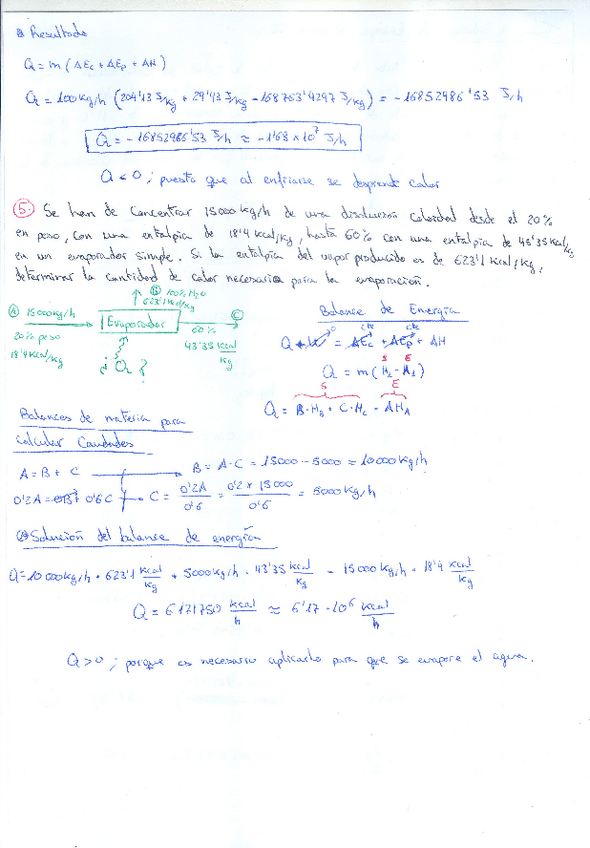 Resultado
Q = m (ΔEc + ΔEp + ΔH)
Q = 100 Kg/h (204'13 J/Kg + 29'43 J/Kg - 168753'4297 J/Kg) = -16852986'53 J/h
Q = -16852986'53 J/h ≈ -1'68 × 10⁷ J/h
Q < 0 ; puesto que al enfriarse se desprende calor
5. Se han de concentrar 15000 Kg/h de una disolución coloidal desde el 20%
en peso, con una entalpia de 18'4 Kcal/Kg, hasta 60% con una entalpia de 43'35 Kcal/Kg
en un evaporador simple. Si la entalpia del vapor producido es de 623'1 Kcal/Kg,
determinar la cantidad de calor necesaria para la evaporación.
B 100% H₂O
623'1 Kcal/Kg
A 15000Kg/h
Evaporador
C
20% peso
60%
18'4 Kcal/Kg
43'35 Kcal/Kg
¿Q?
Balance de Energía
cte cte
Q + W = ΔEc + ΔEp + ΔH
S E
Q = m (H₂ - H₁)
S E
Q = B·HB + C·Hc - AHA
Balances de materia para
calcular Caudales
A = B + C B = A - C = 15000 - 5000 = 10000 Kg/h
0'2A = 0B + 0'6C C = 0'2A / 0'6 = 0'2 × 15000 / 0'6 = 5000 Kg/h
Solución del balance de energía
Q = 10000 Kg/h · 623'1 Kcal/Kg + 5000 Kg/h · 43'35 Kcal/Kg - 15000 Kg/h · 18'4 Kcal/Kg
Q = 6171750 Kcal/h ≈ 6'17 · 10⁶ Kcal/h
Q > 0 ; porque es necesario aplicarlo para que se evapore el agua.